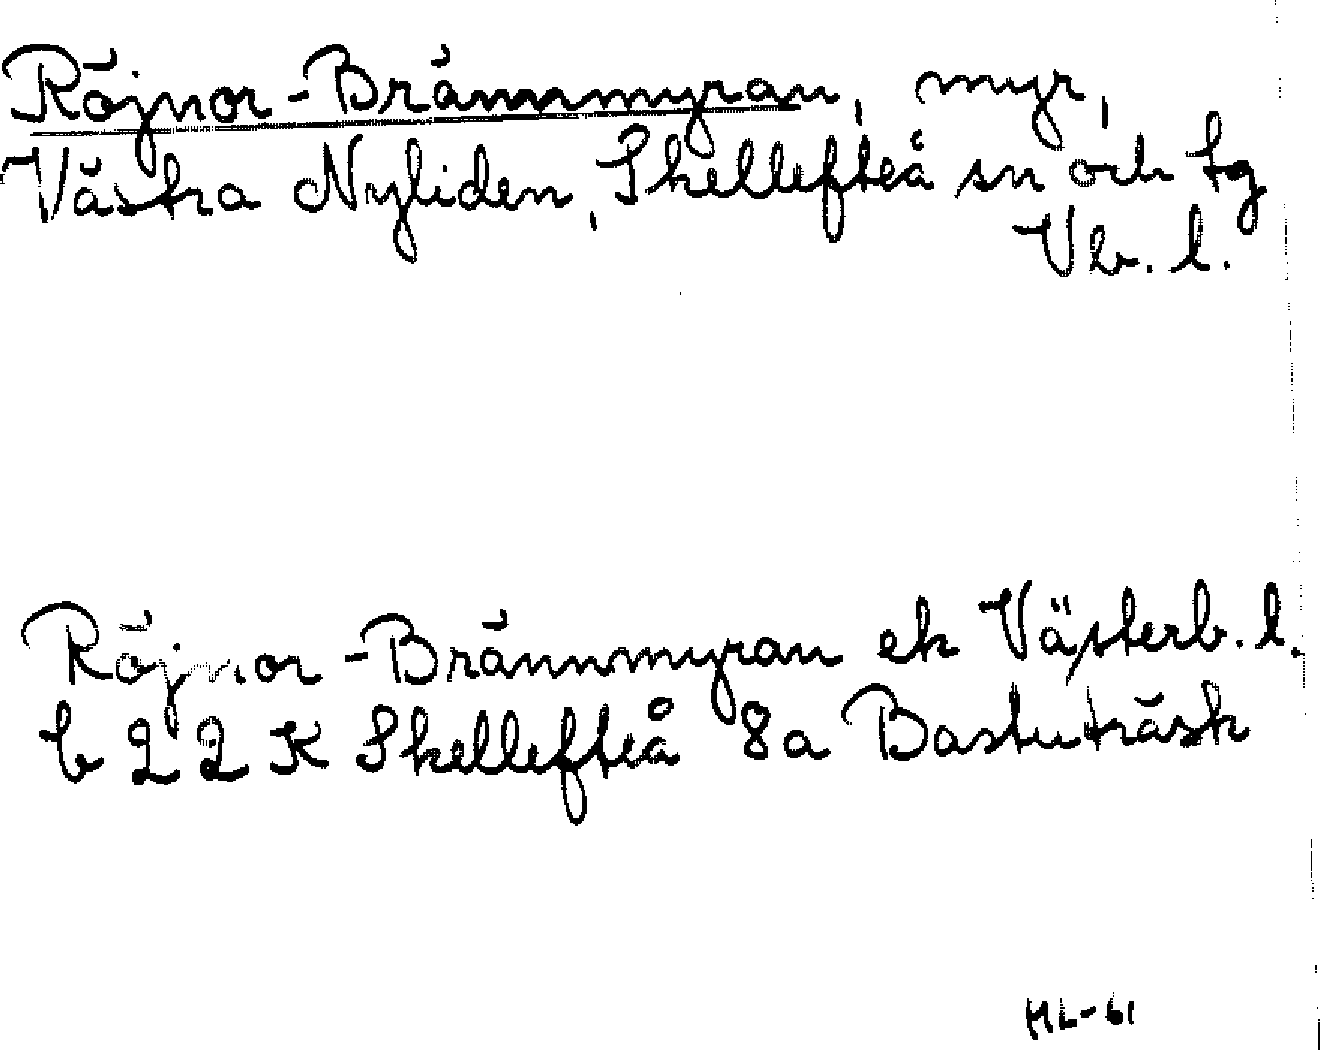 Röjnor-Brännmyran, myr,
Västra Nyliden, Skellefteå sn och tg
Vb. l.
Röjnor-Brännmyran ek Västerb. l.
b 22 K Skellefteå 8a Bastuträsk
ML-61